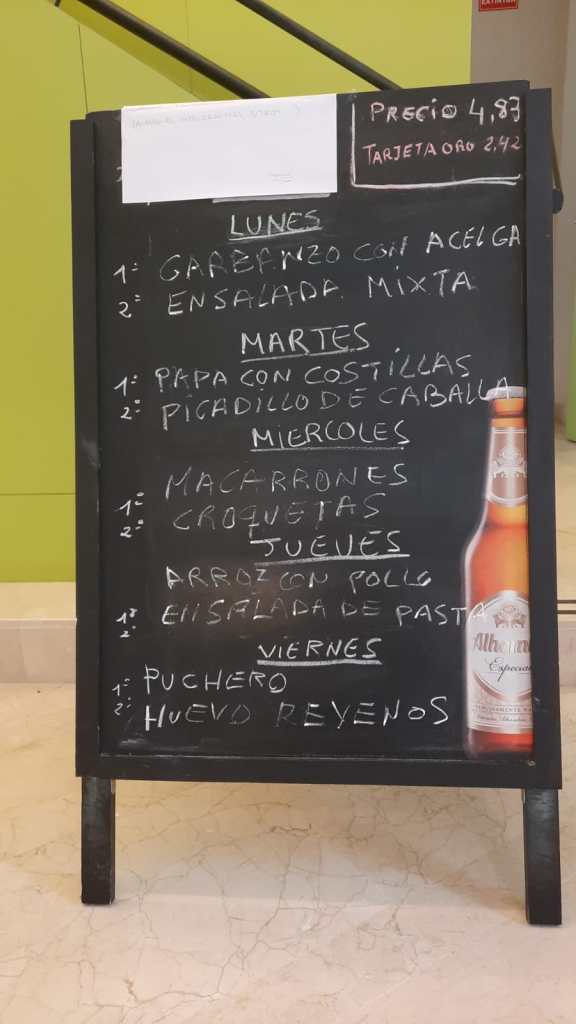 EXTINTOR
PRECIO 4,83
TARJETA ORO 2,42
LUNES
1º GARBANZO CON ACELGA
2º ENSALADA MIXTA
MARTES
1º PAPA CON COSTILLAS
2º PICADILLO DE CABALLA
MIERCOLES
1º MACARRONES
2º CROQUETAS
JUEVES
1º ARROZ CON POLLO
2º ENSALADA DE PASTA
VIERNES
1º PUCHERO
2º HUEVO REYENOS
Especial